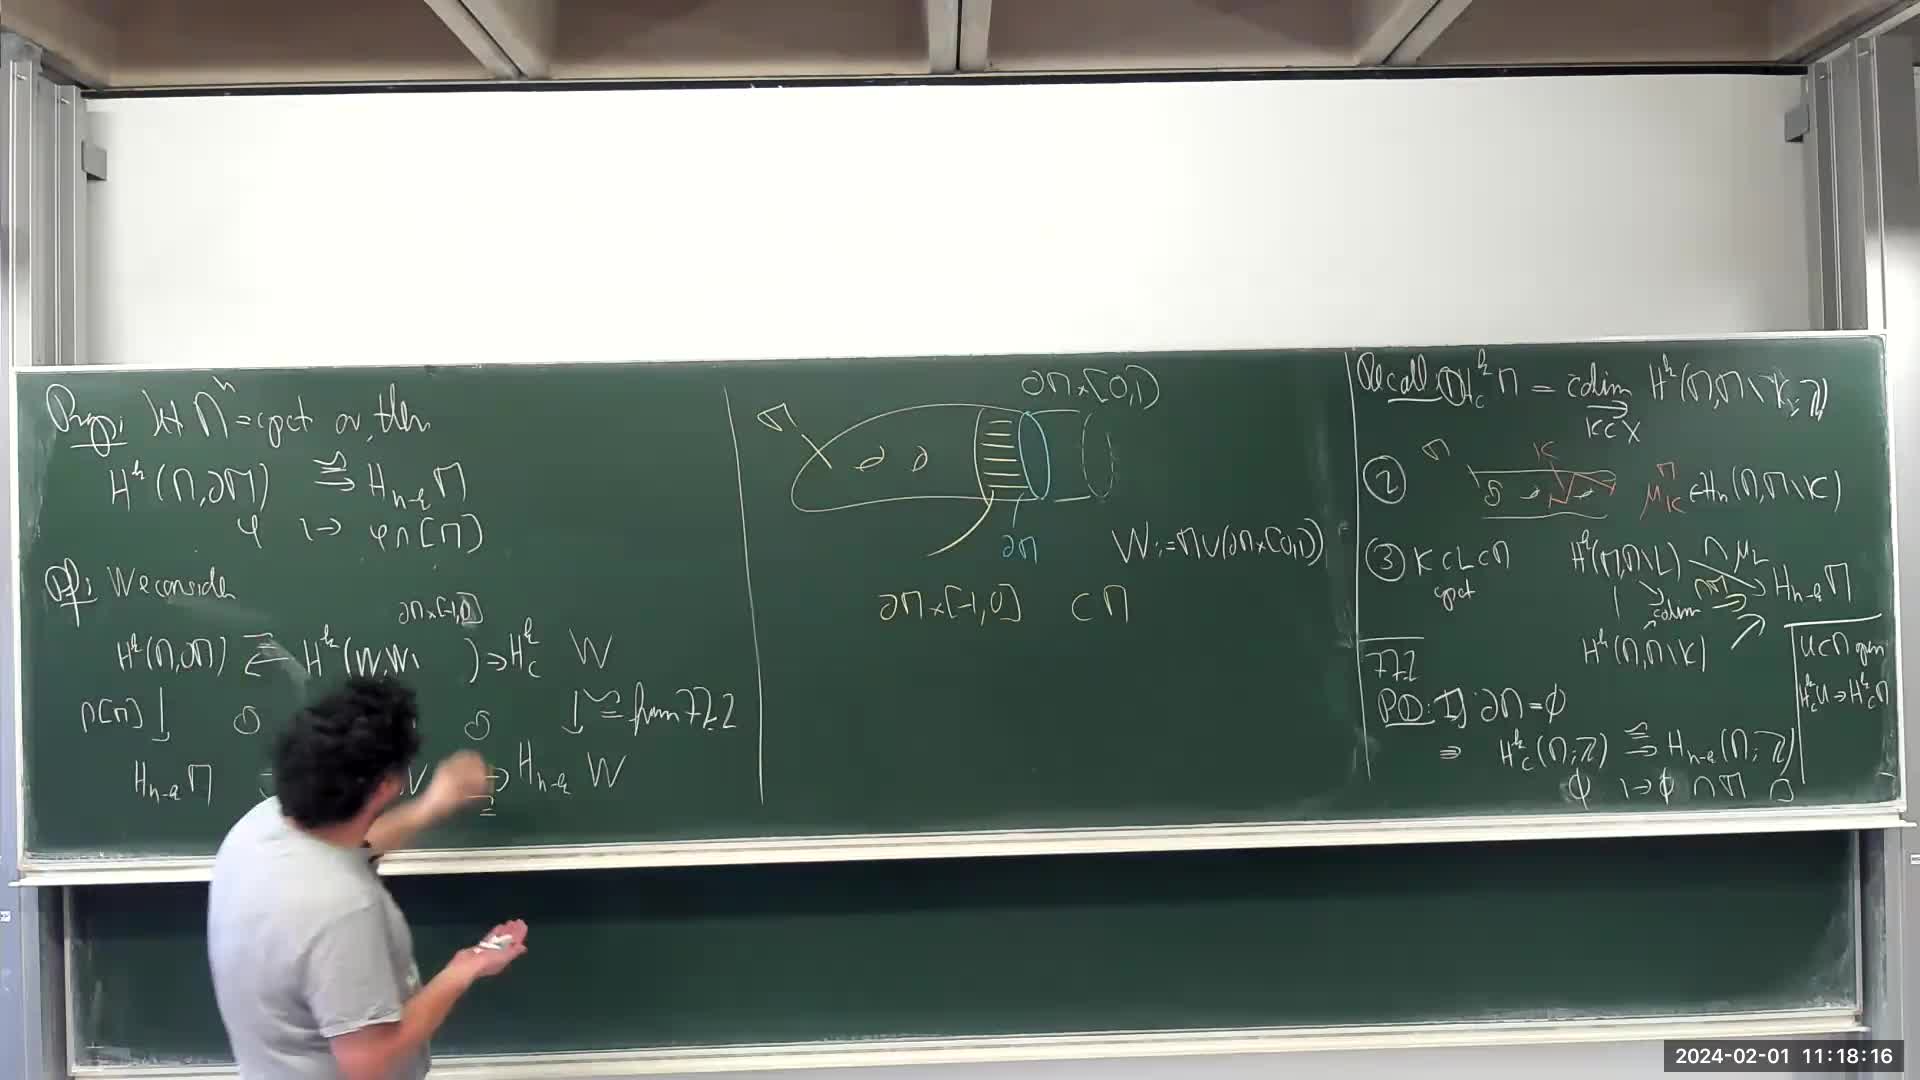 Prop: Let Mⁿ = cpct or, then
Hᵏ(M,∂M) ≅→ Hₙ₋ₖ M
φ ↦ φ∩[M]
Pf: We consider
∂M×[-1,0]
Hᵏ(M,∂M) ≅← Hᵏ(W,W\ ) → H_cᵏ W
∩[M] ↓ ↻ ↻ ↓ ≅ from 77.2
Hₙ₋ₖ M → Hₙ₋ₖ W
=
∂M×[0,1)
M
∂M
W := M∪(∂M×[0,1))
∂M×[-1,0] ⊂ M
Recall: ① H_cᵏ M = colim Hᵏ(M,M\K;ℤ)
K⊂X
② M K μ_K ∈ Hₙ(M,M\K)
③ K⊂L⊂M Hᵏ(M,M\L) ∩μ_L
cpct colim Hₙ₋ₖ M
Hᵏ(M,M\K)
U⊂M open
H_cᵏ U → H_cᵏ M
77.2
PD: ∂M=∅
⇒ H_cᵏ(M;ℤ) ≅→ Hₙ₋ₖ(M;ℤ)
φ ↦ φ∩M
2024-02-01 11:18:16